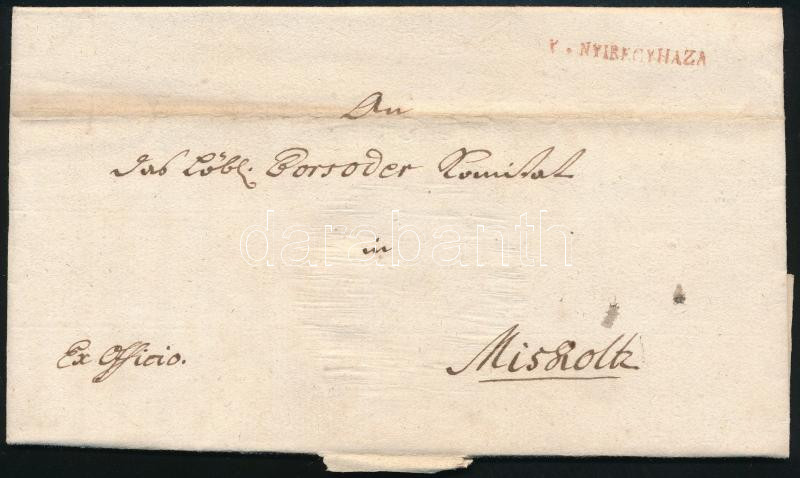 V. NYIREGYHAZA
An
das Löbl. Borsoder Komitat
darabanth
in
Ex Officio.
Miskoltz